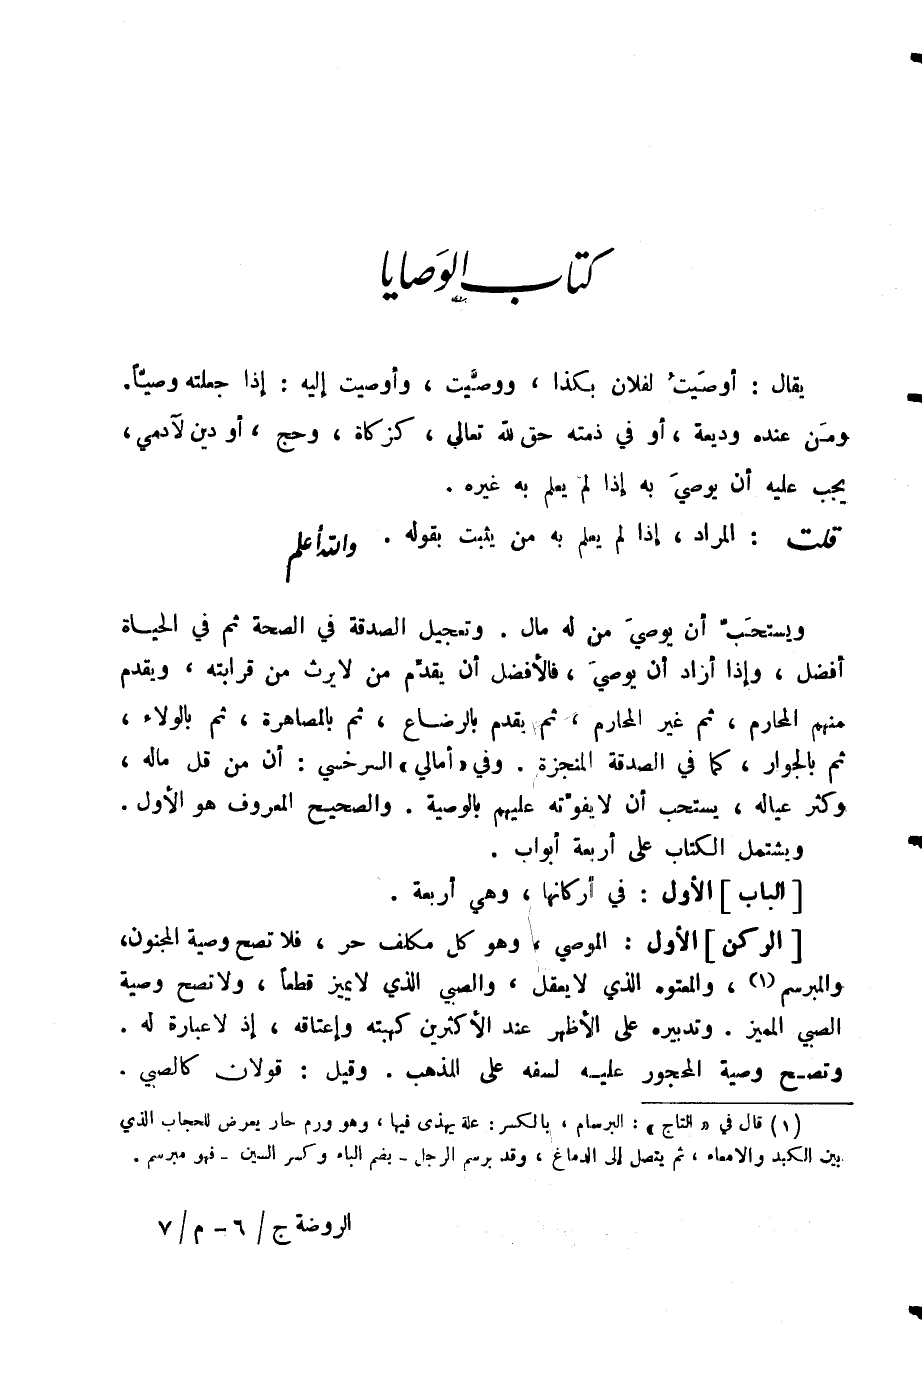 كتاب الوَصايا
يقال : أوصَيتُ لفلان بكذا ، ووصَّيت ، وأوصيت إليه : إذا جعلته وصيّاً.
ومَن عنده وديعة ، أو في ذمته حق لله تعالى ، كزكاة ، وحج ، أو دين لآدمي ،
يجب عليه أن يوصيَ به إذا لم يعلم به غيره .
قلت : المراد ، إذا لم يعلم به من يثبت بقوله . والله أعلم
ويستحَبّ أن يوصيَ من له مال . وتعجيل الصدقة في الصحة ثم في الحياة
أفضل ، وإذا أراد أن يوصيَ ، فالأفضل أن يقدّم من لايرث من قرابته ، ويقدم
منهم المحارم ، ثم غير المحارم ، ثم يقدم بالرضاع ، ثم بالمصاهرة ، ثم بالولاء ،
ثم بالجوار ، كما في الصدقة المنجزة . وفي «أمالي» السرخسي : أن من قل ماله ،
وكثر عياله ، يستحب أن لايفوّته عليهم بالوصية . والصحيح المعروف هو الأول .
ويشتمل الكتاب على أربعة أبواب .
[الباب] الأول : في أركانها ، وهي أربعة .
[الركن] الأول : الموصي ، وهو كل مكلف حر ، فلا تصح وصية المجنون،
والمبرسم (١) ، والمعتوه الذي لايعقل ، والصبي الذي لايميز قطعاً ، ولاتصح وصية
الصبي المميز . وتدبيره على الأظهر عند الأكثرين كهبته وإعتاقه ، إذ لاعبارة له .
وتصح وصية المحجور عليه لسفه على المذهب . وقيل : قولان كالصبي .
(١) قال في « التاج » : البرسام ، بالكسر : علة يهذى فيها ، وهو ورم حار يعرض للحجاب الذي
بين الكبد والامعاء ، ثم يتصل إلى الدماغ ، وقد برسم الرجل ـ بضم الباء وكسر السين ـ فهو مبرسم .
الروضة ج / ٦ - م / ٧